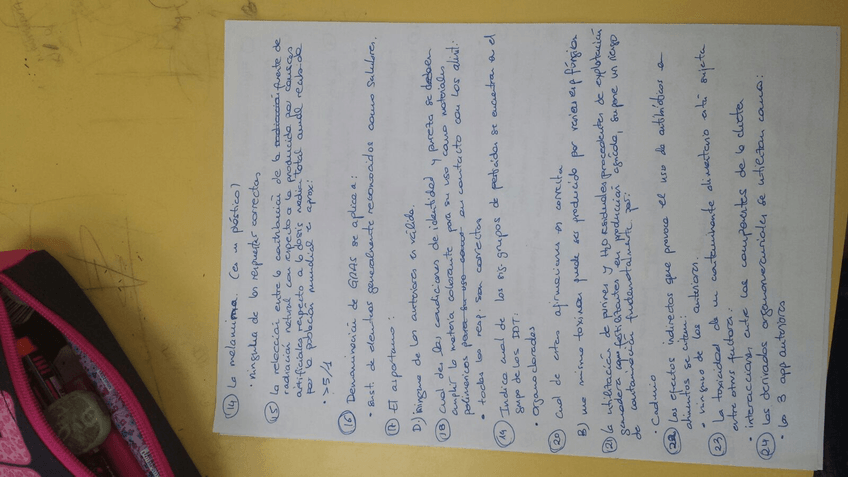 14 La melamina. (es un plástico)
• ninguna de las respuestas correctas
15 La relación entre la contribución de la radiación fuente de
radiación natural con respecto a la producida por causas
artificiales respecto a la dosis media total anual recibida
por la población mundial es aprox:
• >5/1
16 Denominación de GRAS se aplica a:
• Sust. de alimentos generalmente reconocidos como salubres.
17 El aspartamo:
D) Ninguno de los anteriores es válido.
18 Cual de las condiciones de identidad y pureza se deben
cumplir la materia colorante para su uso como materiales
polímericos para su uso como en contacto con los alim:
• todas las resp. son correctas
19 Indica cual de los sig. grupos de pesticidas se encuentra en el
grupo de los DDT:
• organoclorados
20 Cual de estas afirmaciones es correcta
B) una misma toxina puede ser producida por varias esp fúngicas
21 La utilización de purines y H2O residuales procedentes de explotación
ganadera como fertilizantes en producción agrícola, supone un riesgo
de contaminación fundamentalmente por:
• Cadmio
22 Los efectos indirectos que provoca el uso de antibióticos a
alimentos serían:
• ninguno de las anteriores.
23 La toxicidad de un contaminante alimentario está sujeta
entre otros factores:
• interacciones entre los componentes de la dieta
24 Los derivados organomercuriales se utilizan como:
• las 3 app anteriores